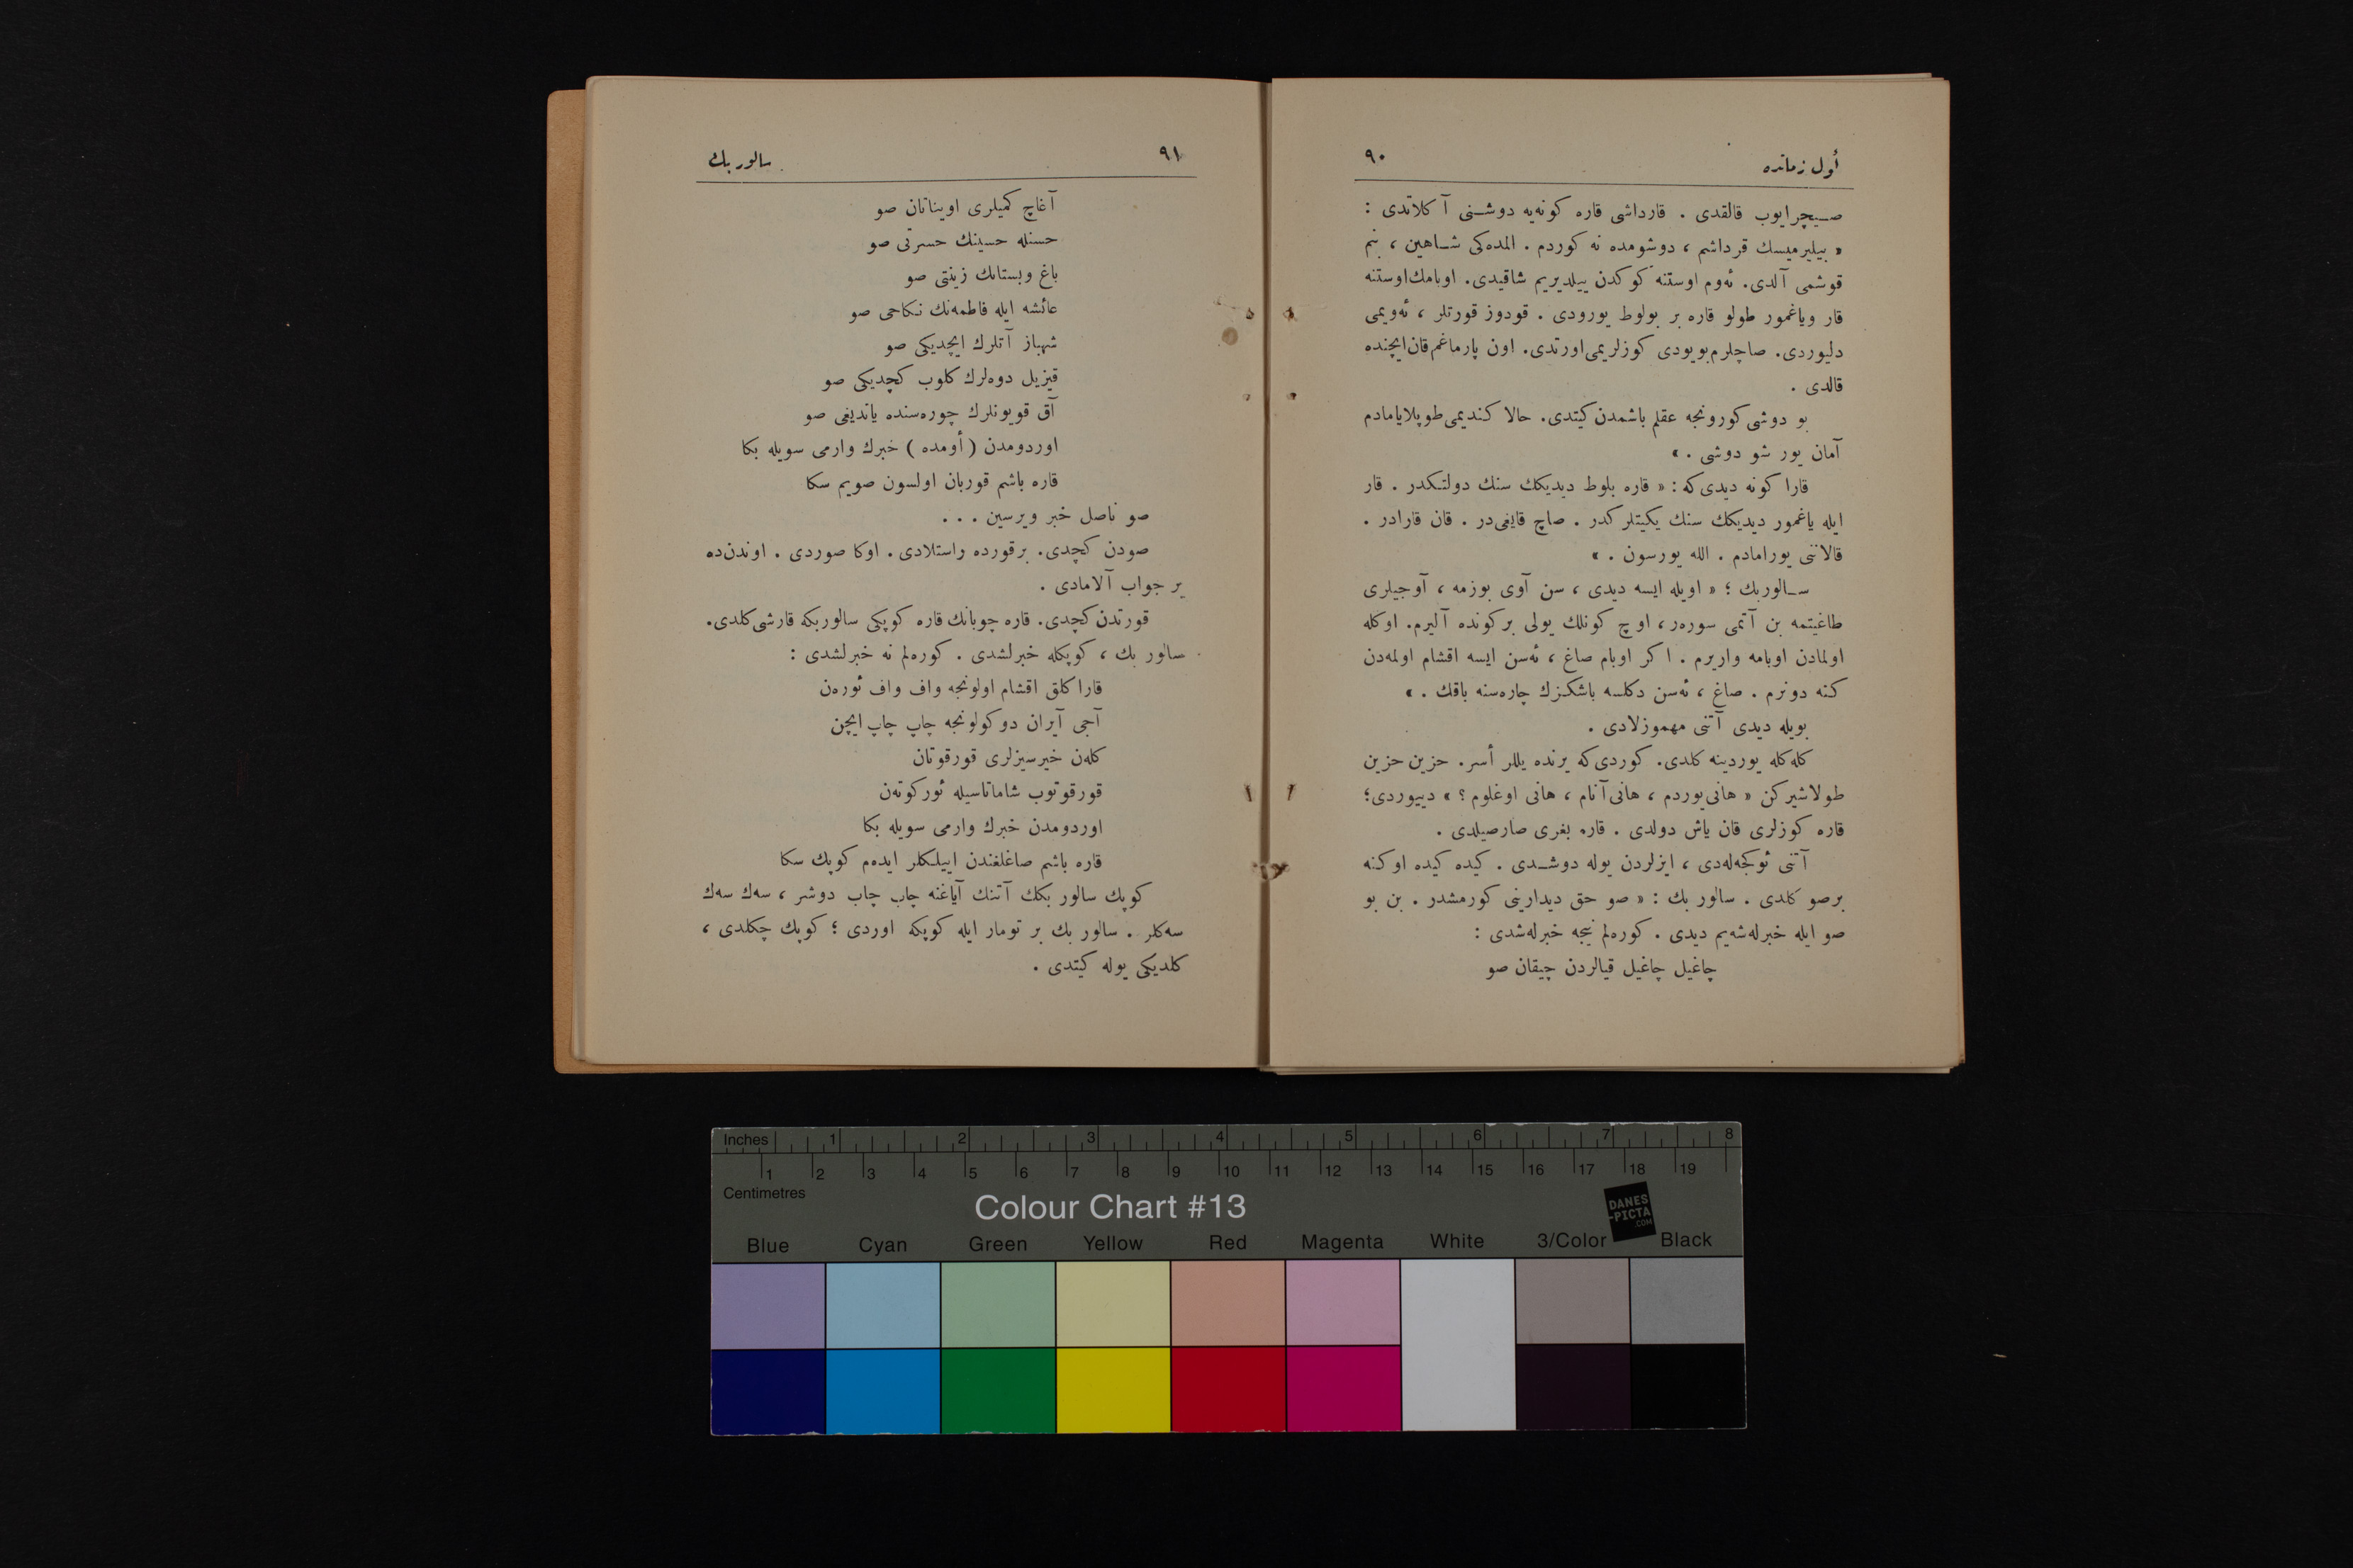 أول زمانده
٩٠
صـيچرايوب قالقدى . قارداشى قاره كونه‌يه دوشـنى آكلاتدى :
« بيليرميسك قرداشم ، دوشومده نه كوردم . المده‌كى شـاهين ، بنم
قوشمى آلدى. ئه‌وم اوستنه كوكدن ييلديريم شاقيدى. اوبامك اوستنه
قار وياغمور طولو قاره بر بولوط يورودى . قودوز قورتلر ، ئه‌ويمى
دليوردى. صاچلرم بويودى كوزلريمى اورتدى. اون پارماغم قان ايچنده
قالدى .
بو دوشى كورونجه عقلم باشمدن كيتدى. حالا كنديمى طوپلايامادم
آمان يور شو دوشى . »
قارا كونه ديدى كه : « قاره بلوط ديديكك سنك دولتـكدر . قار
ايله ياغمور ديديكك سنك يكيتلركدر . صاچ قايغى در . قان قارادر .
قالاننى يورامادم . الله يورسون . »
سـالوربك ؛ « اويله ايسه ديدى ، سن آوى بوزمه ، آوجيلرى
طاغيتمه بن آتمى سوره‌ر، اوچ كونلك يولى بركونده آليرم. اوكله
اولمادن اوبامه واريرم . اكر اوبام صاغ ، ئه‌سن ايسه اقشام اولمه‌دن
كنه دونرم . صاغ ، ئه‌سن دكلسه باشكـزك چاره‌سنه باقك . »
بويله ديدى آتنى مهموزلادى .
كله كله يوردينه كلدى. كوردى كه يرنده يللر أسر. حزين حزين
طولاشيركن « هانى يوردم ، هانى آنام ، هانى اوغلوم ؟ » دييوردى؛
قاره كوزلرى قان ياش دولدى . قاره بغرى صارصيلدى .
آتنى ئوكجه‌له‌دى ، ايزلردن يوله دوشـدى . كيده كيده اوكنه
برصو كلدى . سالور بك : « صو حق ديدارينى كورمشدر . بن بو
صو ايله خبرله‌شه‌يم ديدى . كوره‌لم نيجه خبرله‌شدى :
چاغيل چاغيل قيالردن چيقان صو
٩١
سالور بك
آغاچ كميلرى اويناتان صو
حسنله حسينك حسرتى صو
باغ وبستانك زينتى صو
عائشه ايله فاطمه‌نك نـكاحى صو
شهباز آتلرك ايچديكى صو
قيزيل دوه‌لرك كلوب كچديكى صو
آق قويونلرك چوره‌سنده ياتديغى صو
اوردومدن ( أومده ) خبرك وارمى سويله بكا
قاره باشم قوربان اولسون صويم سكا
صو ناصل خبر ويرسين . . .
صودن كچدى. برقورده راستلادى . اوكا صوردى . اوندن ده
بر جواب آلامادى .
قورتدن كچدى. قاره چوبانك قاره كوپكى سالوربكه قارشى كلدى.
سالور بك ، كوپكله خبرلشدى . كوره‌لم نه خبرلشدى :
قارا كلق اقشام اولونجه واف واف ئوره‌ن
آجى آيران دوكولونجه چاپ چاپ ايچن
كله‌ن خيرسيزلرى قورقوتان
قورقوتوب شاماتاسيله ئوركوته‌ن
اوردومدن خبرك وارمى سويله بكا
قاره باشم صاغلغندن اييلـكلر ايده‌م كوپك سكا
كوپك سالور بكك آتنك آياغنه چاپ چاب دوشر ، سه‌ك سه‌ك
سه‌كلر . سالور بك بر تومار ايله كوپكه اوردى ؛ كوپك چكلدى ،
كلديكى يوله كيتدى .
Inches 1 2 3 4 5 6 7 8
1 2 3 4 5 6 7 8 9 10 11 12 13 14 15 16 17 18 19
Centimetres
Colour Chart #13
DANES
-PICTA
.COM
Blue Cyan Green Yellow Red Magenta White 3/Color Black